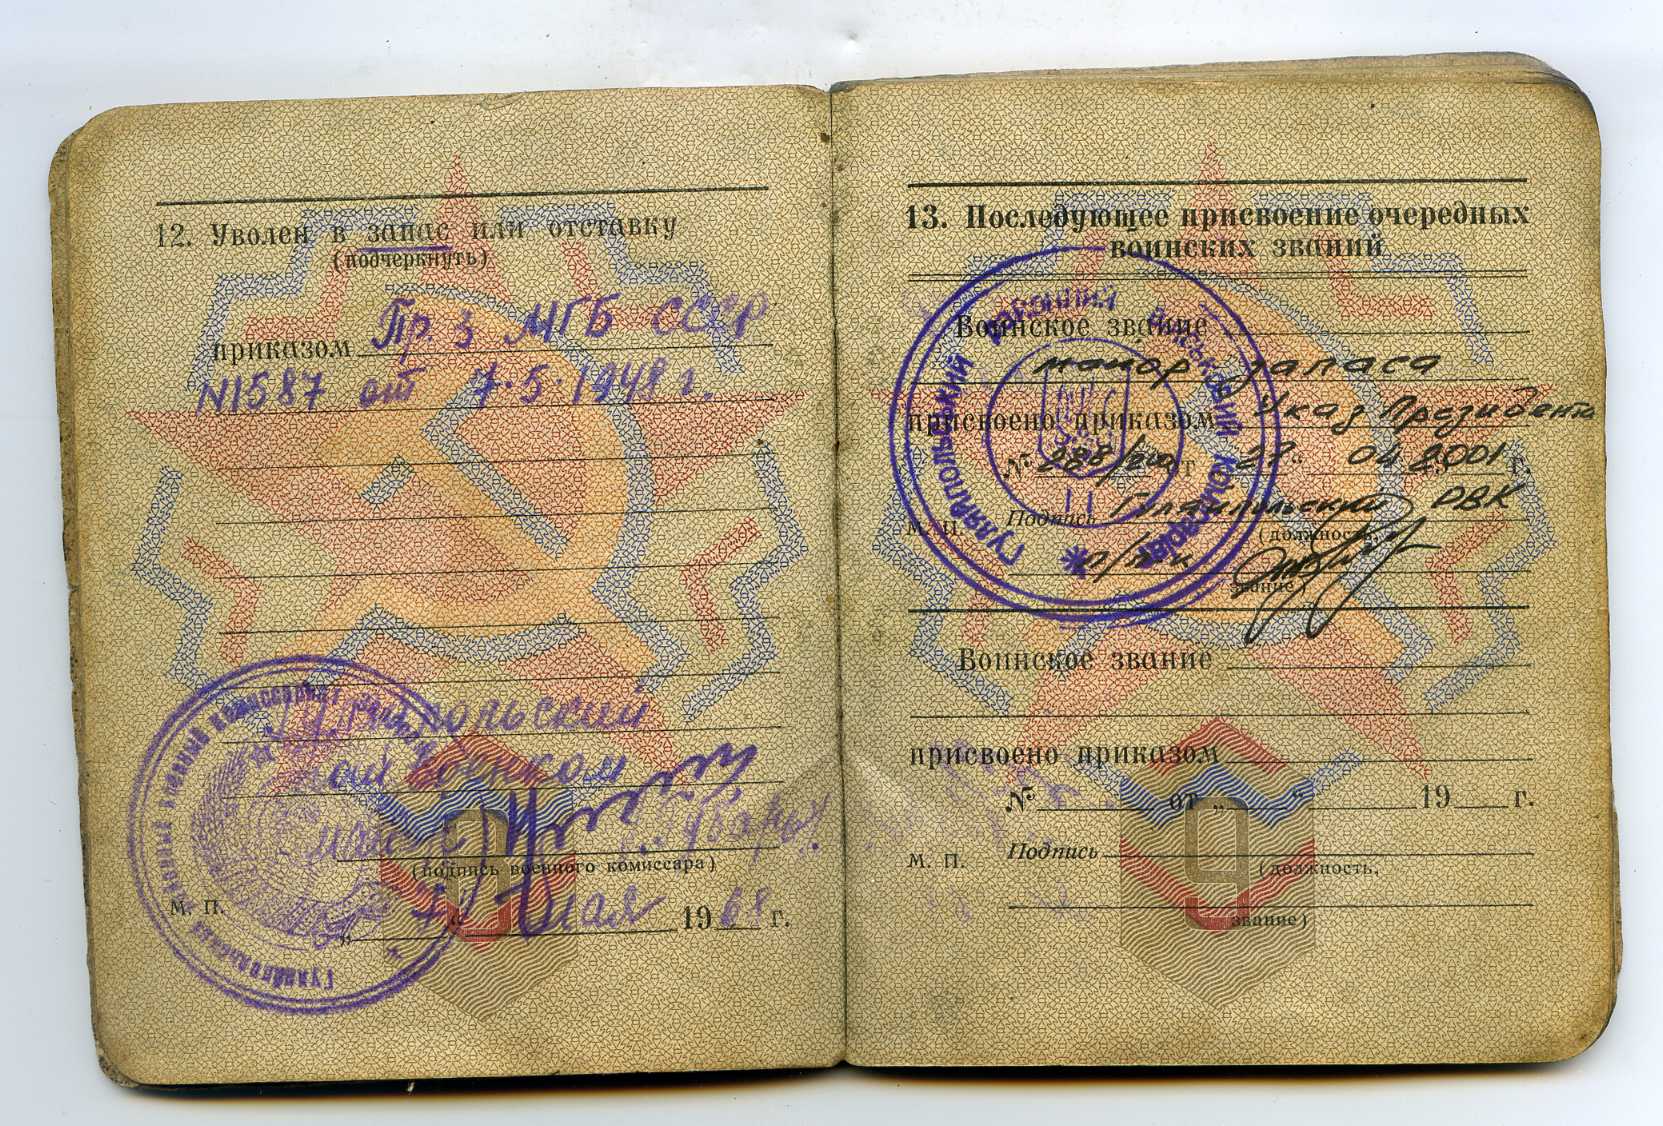 12. Уволен в запас или отставку
(подчеркнуть)
приказом Пр. з МГБ СССР
N1587 от 7.5.1948 г.
польский
военком
(подпись военного комиссара)
М. П. „7" мая 1968 г.
13. Последующее присвоение очередных
воинских званий
Воинское звание
майор запаса
присвоено приказом Указ Президента
№ 288/2001 от 22" 04 2001 г.
М. П. Подпись Гуляйпольский РВК
(должность,
п/п-к
звание)
Гуляйпольський районний військовий комісаріат
Воинское звание
присвоено приказом
№ от „ " 19 г.
М. П. Подпись
(должность,
звание)